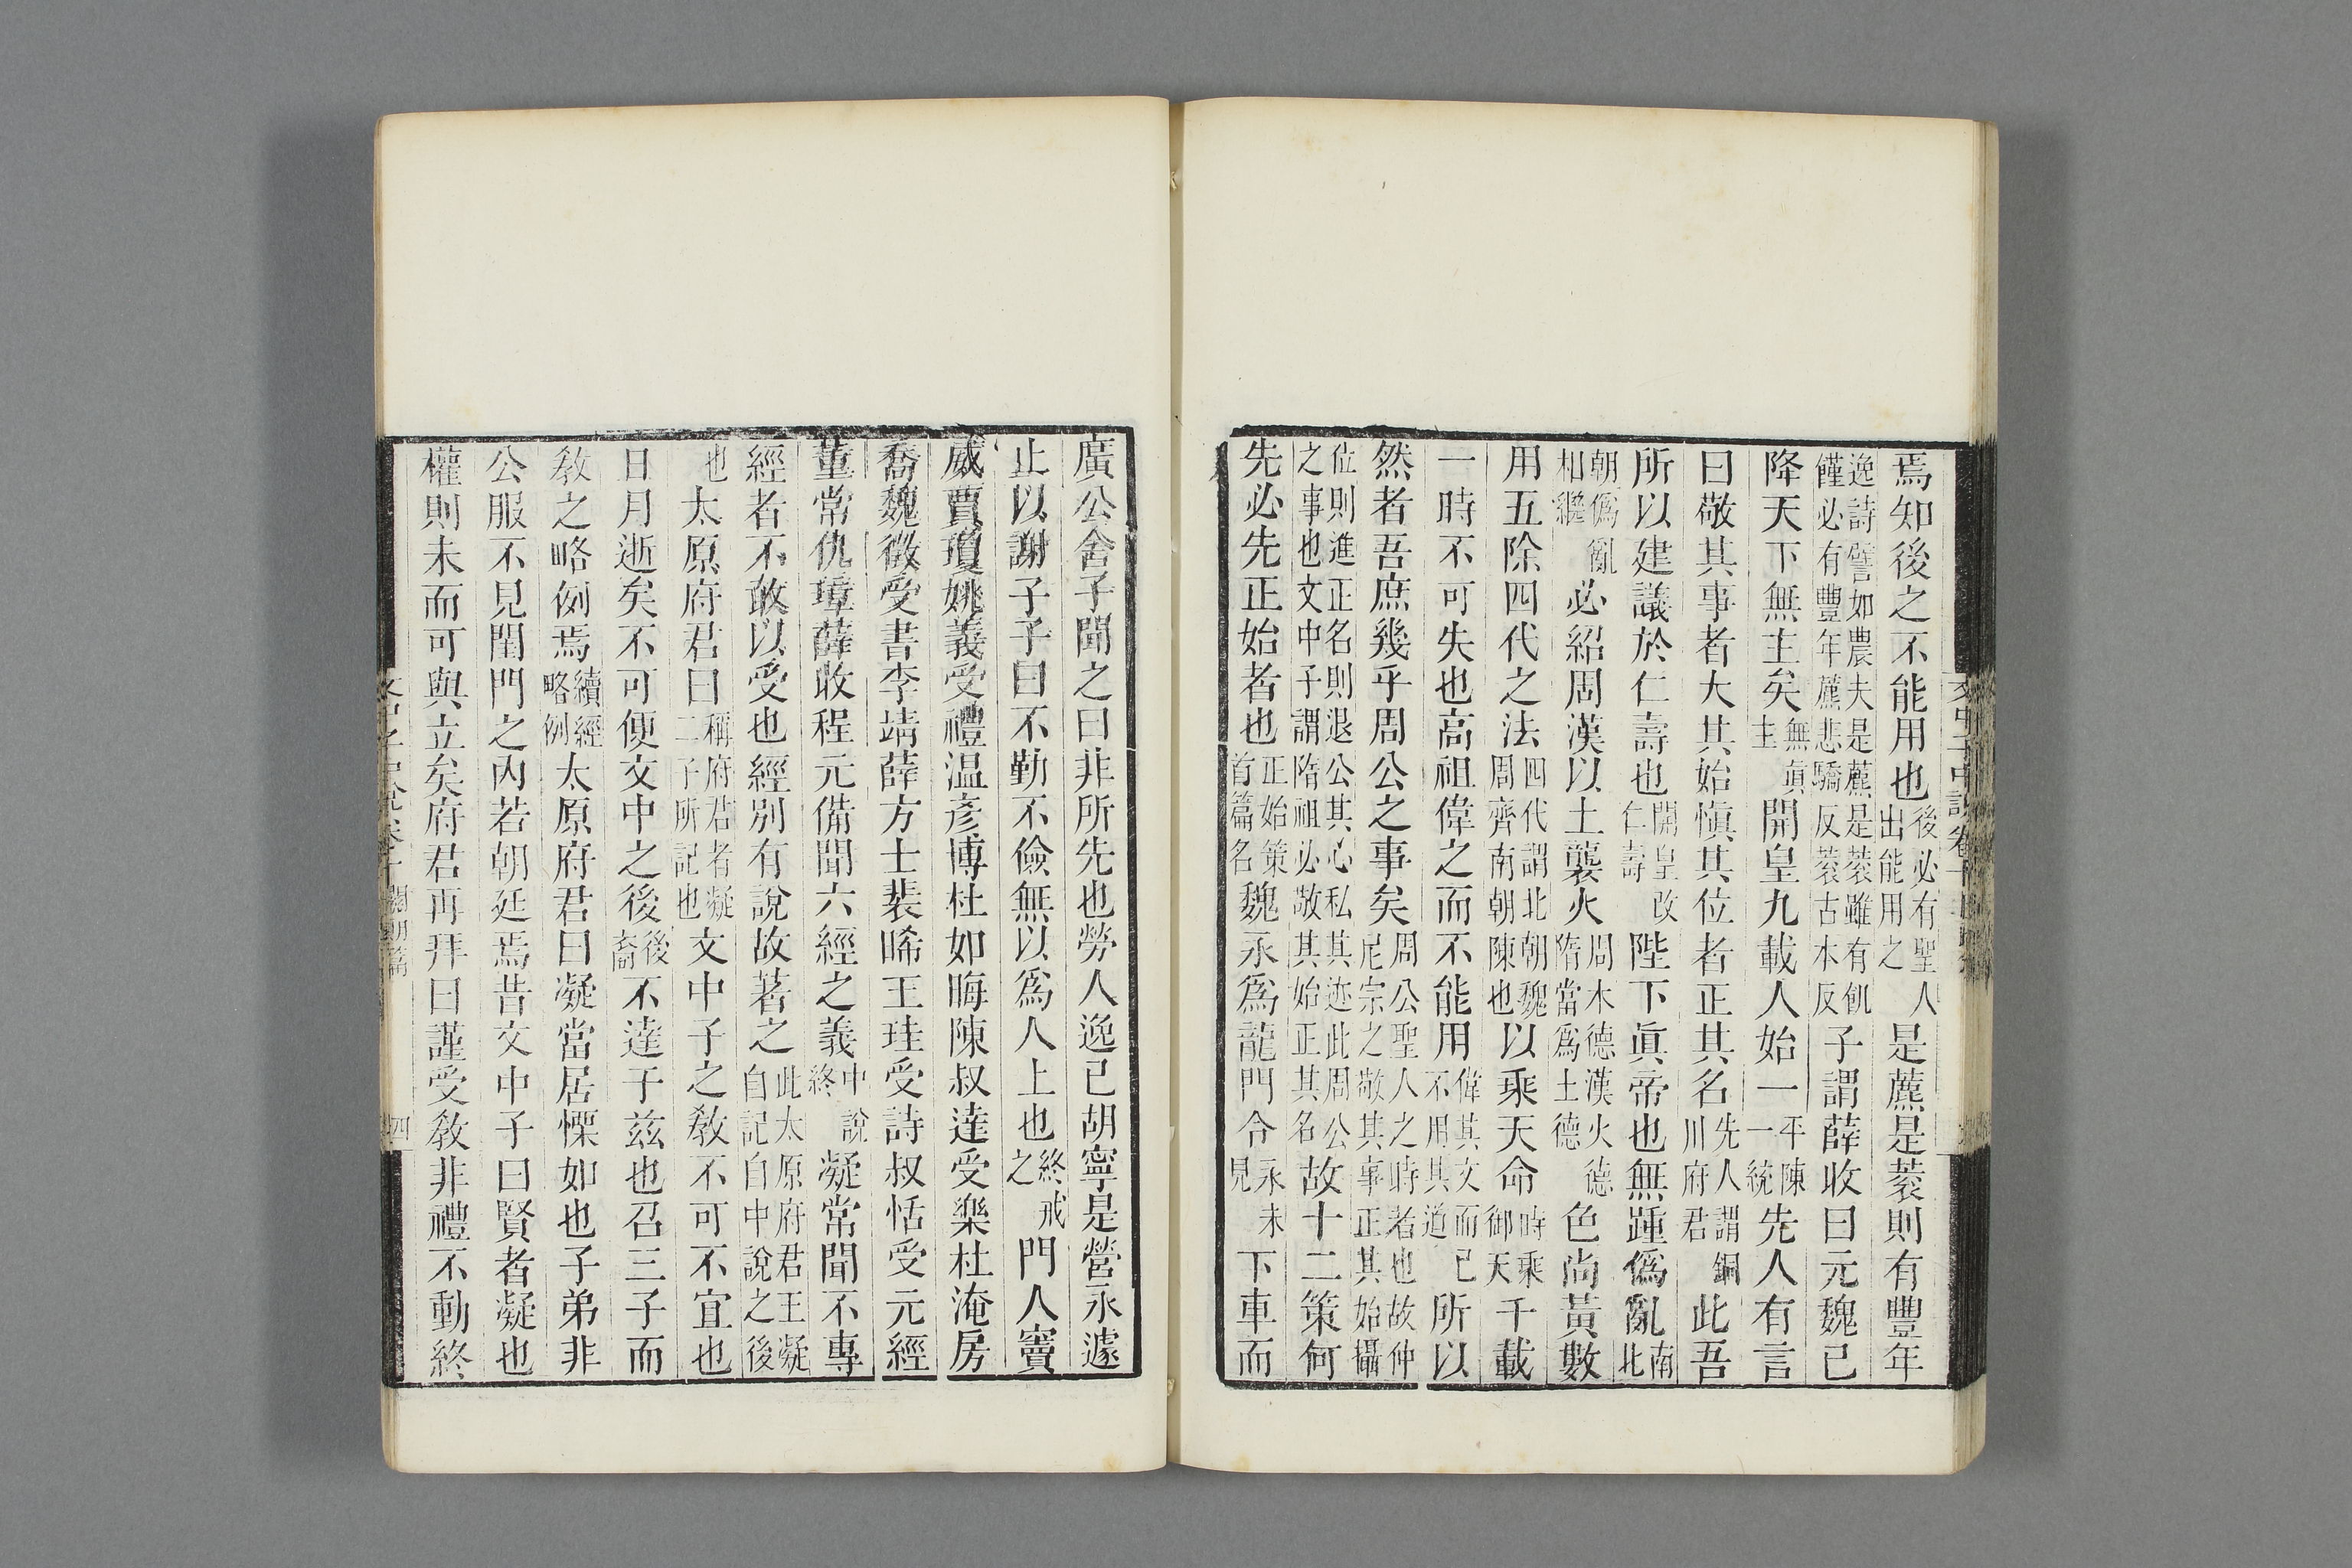 焉知後之不能用也後必有聖人出能用之是藨是蔉則有豐年
逸詩譬如農夫是藨是蔉雖有飢饉必有豐年藨悲驕反蔉古本反子謂薛收曰元魏已
降天下無主矣無眞主開皇九載人始一平陳一統先人有言
曰敬其事者大其始愼其位者正其名先人謂銅川府君此吾
所以建議於仁壽也開皇改仁壽陛下眞帝也無踵僞亂南北
朝僞亂相繼必紹周漢以土襲火周木德漢火德隋當爲土德色尚黃數
用五除四代之法四代謂北朝魏周齊南朝陳也以乘天命時乘御天千載
一時不可失也高祖偉之而不能用偉其文而已不用其道所以
然者吾庶幾乎周公之事矣周公聖人之時者也故仲尼宗之敬其事正其始攝
位則進正名則退公其心私其迹此周公之事也文中子謂隋祖必敬其始正其名故十二策何
先必先正始者也正始策首篇名魏永爲龍門令永未見下車而
廣公舍子聞之曰非所先也勞人逸已胡寧是營永遽
止以謝子子曰不勤不儉無以爲人上也終戒之門人竇
威賈瓊姚義受禮温彥博杜如晦陳叔達受樂杜淹房
喬魏徵受書李靖薛方士裴晞王珪受詩叔恬受元經
董常仇璋薛收程元備聞六經之義中說終凝常聞不專
經者不敢以受也經別有說故著之此太原府君王凝自記自中說之後
也太原府君曰稱府君者凝二子所記也文中子之敎不可不宣也
日月逝矣不可便文中之後後裔不達于兹也召三子而
敎之略例焉續經略例太原府君曰凝當居慄如也子弟非
公服不見閨門之內若朝廷焉昔文中子曰賢者凝也
權則未而可與立矣府君再拜曰謹受敎非禮不動終
文中子中說卷十 關朗篇 四